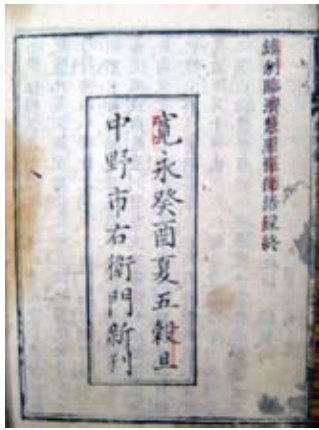 鎮州臨濟慧照禪師語録終
寛永癸酉夏五穀旦
中野市右衛門新刊